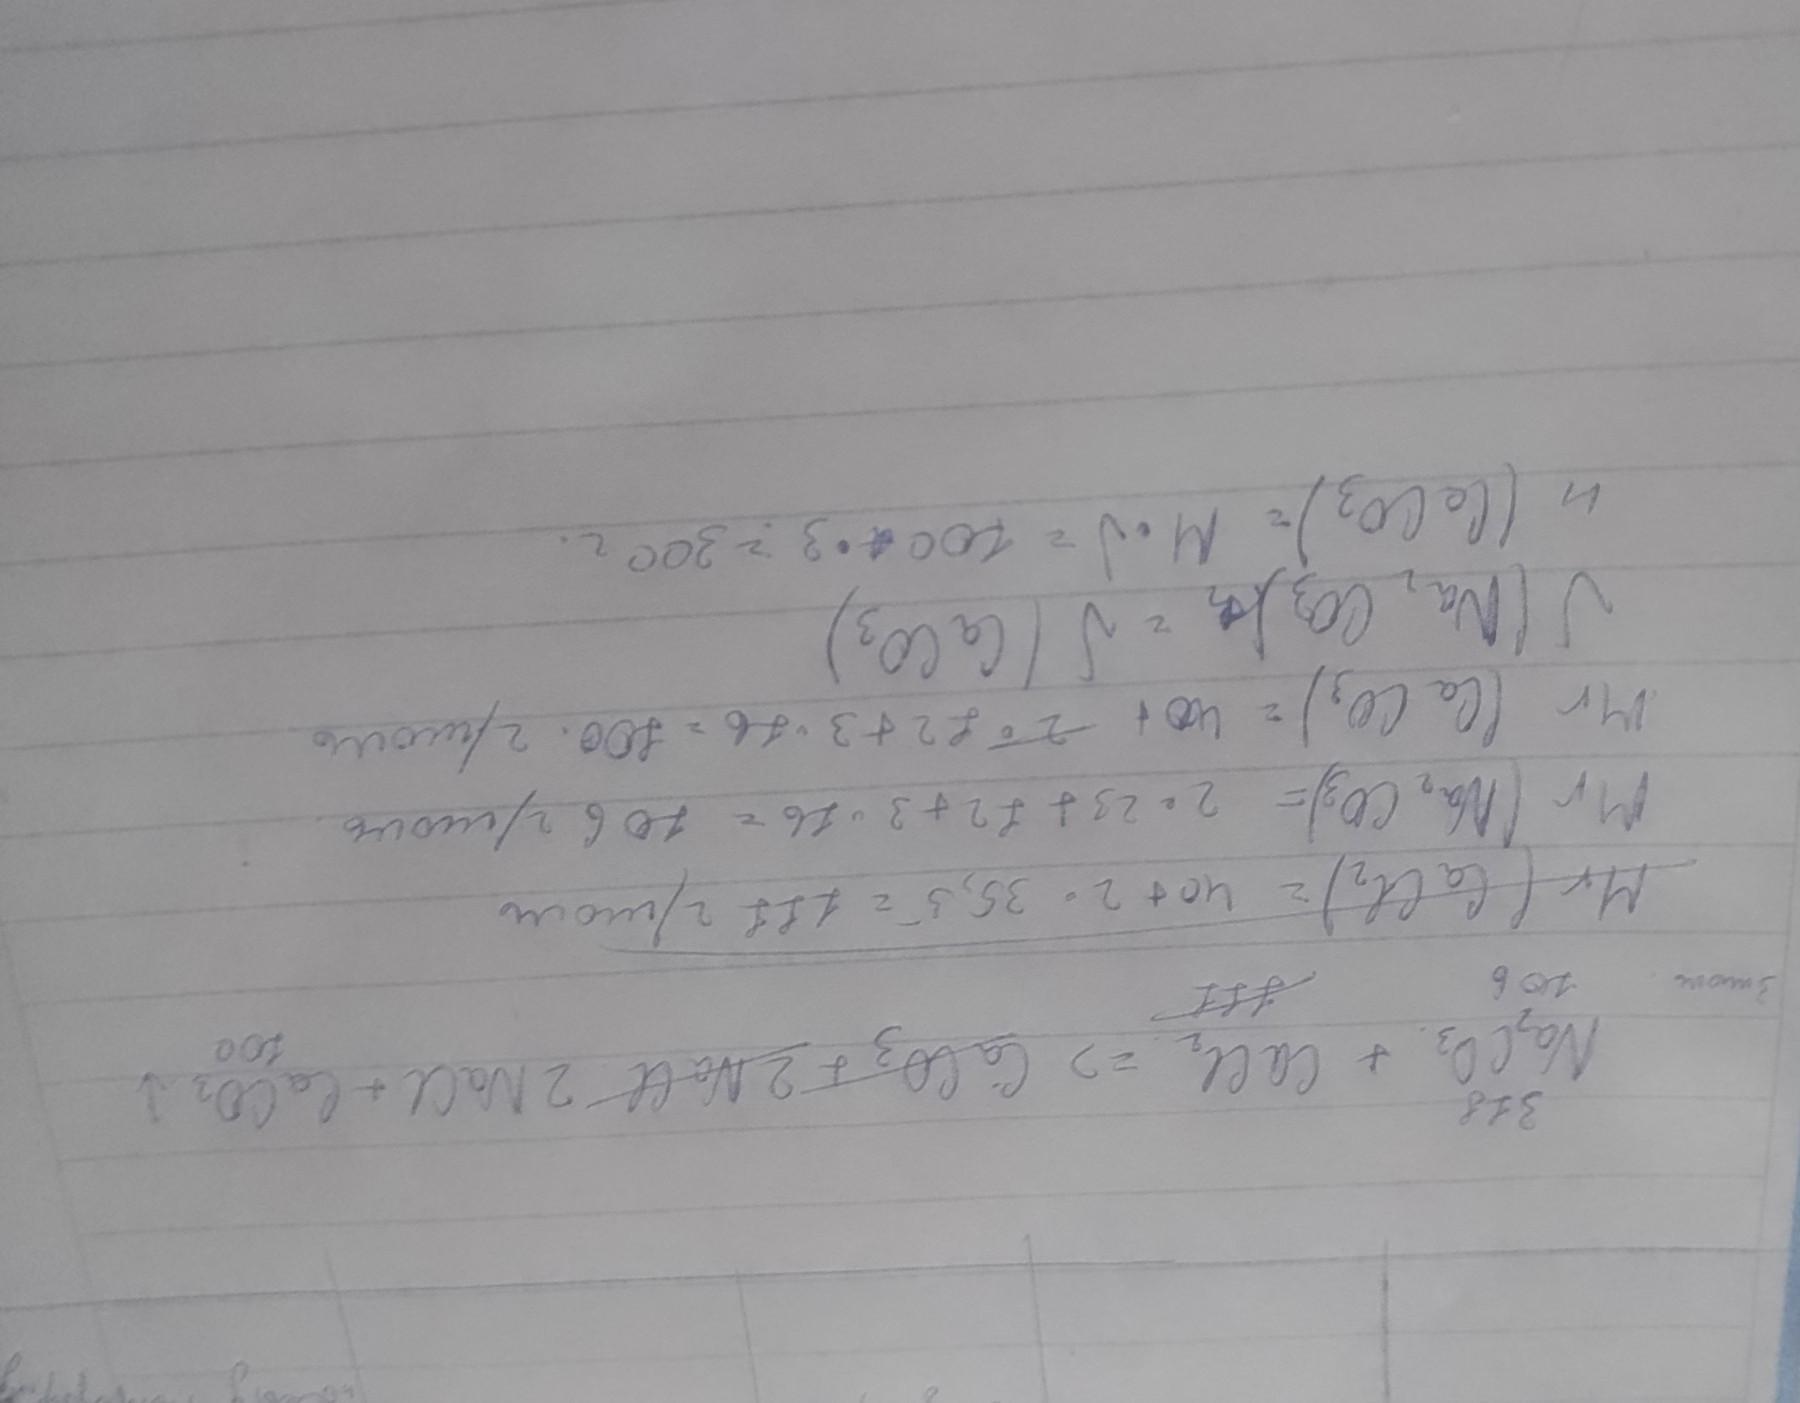 318
Na₂CO₃ + CaCl₂ => CaCO₃ + 2NaCl 2NaCl + CaCO₃↓
3 моль 106 111 100
Mr (CaCl₂) = 40 + 2 · 35,5 = 111 г/моль
Mr (Na₂CO₃) = 2 · 23 + 12 + 3 · 16 = 106 г/моль
Mr (CaCO₃) = 40 + 2 · 12 + 3 · 16 = 100. г/моль
ν (Na₂CO₃) = ν (CaCO₃)
н (CaCO₃) = M · ν = 100 · 3 = 300 г.